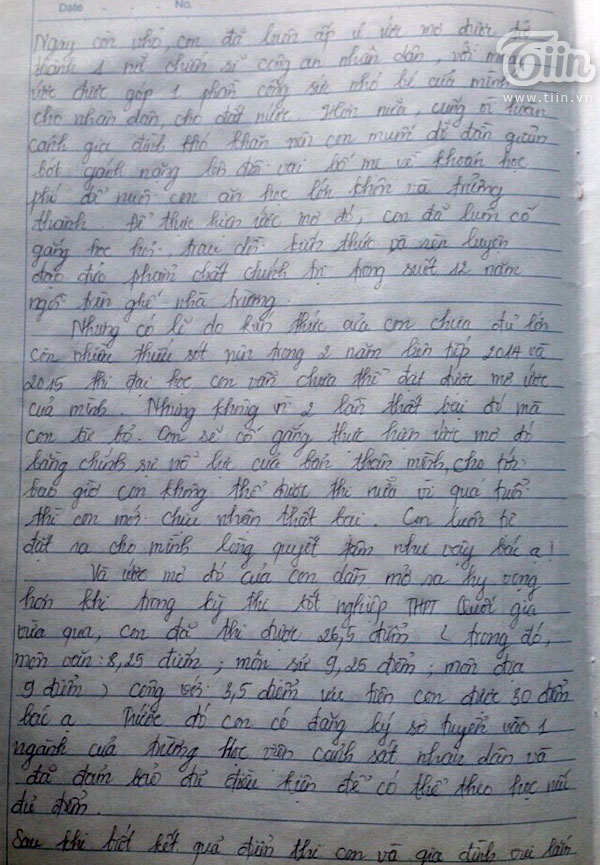 Date No.
Tiin
www.tiin.vn
Ngay còn nhỏ con đã luôn ấp ủ ước mơ được trở
thành 1 nữ chiến sĩ công an nhân dân, với mong
ước được góp 1 phần công sức nhỏ bé của mình
cho nhân dân, cho đất nước. Hơn nữa, cũng vì hoàn
cảnh gia đình khó khăn nên con muốn đỡ đần giảm
bớt gánh nặng lên đôi vai bố mẹ về khoản học
phí để nuôi con ăn học lớn khôn và trưởng
thành. Để thực hiện ước mơ đó, con đã luôn cố
gắng học hỏi, trau dồi kiến thức và rèn luyện
đạo đức phẩm chất chính trị trong suốt 12 năm
ngồi trên ghế nhà trường.
Nhưng có lẽ do kiến thức của con chưa đủ lớn
còn nhiều thiếu sót nên trong 2 năm liên tiếp 2014 và
2015 thi đại học con vẫn chưa thể đạt được mơ ước
của mình. Nhưng không vì 2 lần thất bại đó mà
con từ bỏ. Con sẽ cố gắng thực hiện ước mơ đó
bằng chính sự nỗ lực của bản thân mình, cho tới
bao giờ con không thể được thi nữa vì quá tuổi
thì con mới chịu nhận thất bại. Con luôn tự
đặt ra cho mình lòng quyết tâm như vậy bác ạ!
Và ước mơ đó của con dần mở ra hy vọng
hơn khi trong kỳ thi tốt nghiệp THPT Quốc gia
vừa qua, con đã thi được 26,5 điểm (trong đó,
môn văn: 8,25 điểm; môn sử 9,25 điểm; môn địa
9 điểm) cộng với 3,5 điểm ưu tiên con được 30 điểm
bác ạ. Trước đó con có đăng ký sơ tuyển vào 1
ngành của trường Học viện cảnh sát nhân dân và
đã đảm bảo đủ điều kiện để có thể theo học nếu
đủ điểm.
Sau khi biết kết quả điểm thi con và gia đình vui lắm